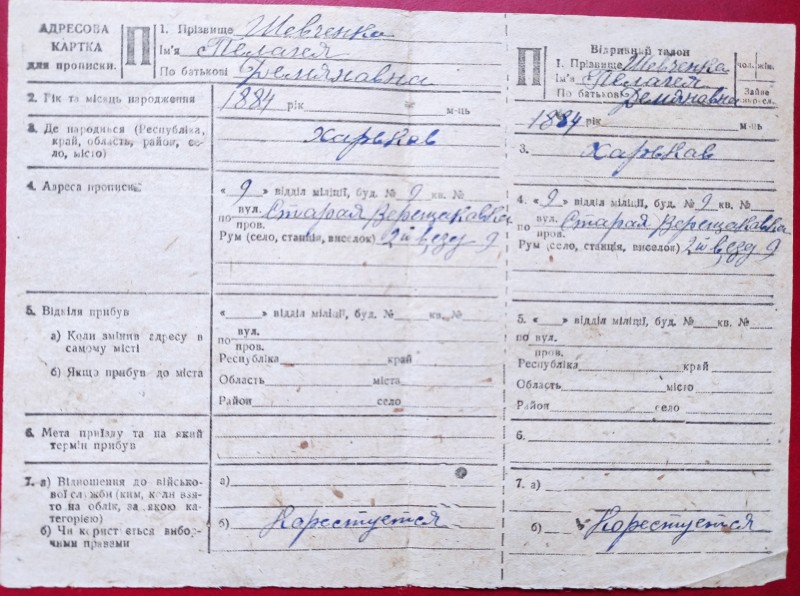 АДРЕСОВА
КАРТКА
для прописки.
П
1. Прізвище Шевченко
Ім'я Пелагея
По батькові Демяновна
2. Рік та місяць народження
1884 рік м-ць
3. Де народився (Республіка,
край, область, район, се-
ло, місто)
Харьков
4. Адреса прописки
« 9 » відділ міліції, буд. № 9 кв. №
вул.
по Старая Верещаковка
пров.
Рум (село, станція, виселок) 2й взд 9
5. Відкіля прибув
а) Коли змінив адресу в
самому місті
б) Якщо прибув до міста
« » відділ міліції, буд. № кв. №
вул.
по
пров.
Республіка край
Область міста
Район село
6. Мета приїзду та на який
термін прибув
7. а) Відношення до військо-
вої служби (ким, коли взя-
то на облік, за якою ка-
тегорією)
б) Чи користується вибор-
чими правами
а)
б) Користуется
П
Відривний талон
1. Прізвище Шевченко
Ім'я Пелагея
По батькові Демяновна
чол. жін.
Зайве
1884 рік м-ць
3. Харьков
4. « 9 » відділ міліції, буд. № 9 кв. №
вул.
по Старая Верещаковка
пров.
Рум (село, станція, виселок) 2й взд 9
5. « » відділ міліції, буд. № кв. №
по вул.
пров.
Республіка край
Область місто
Район село
6.
7. а)
б) Користуется